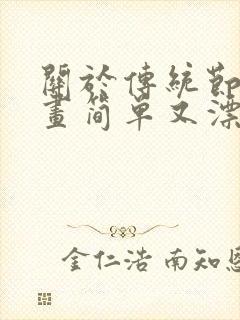 關於傳統節
畫簡單又漂
金仁浩 南知